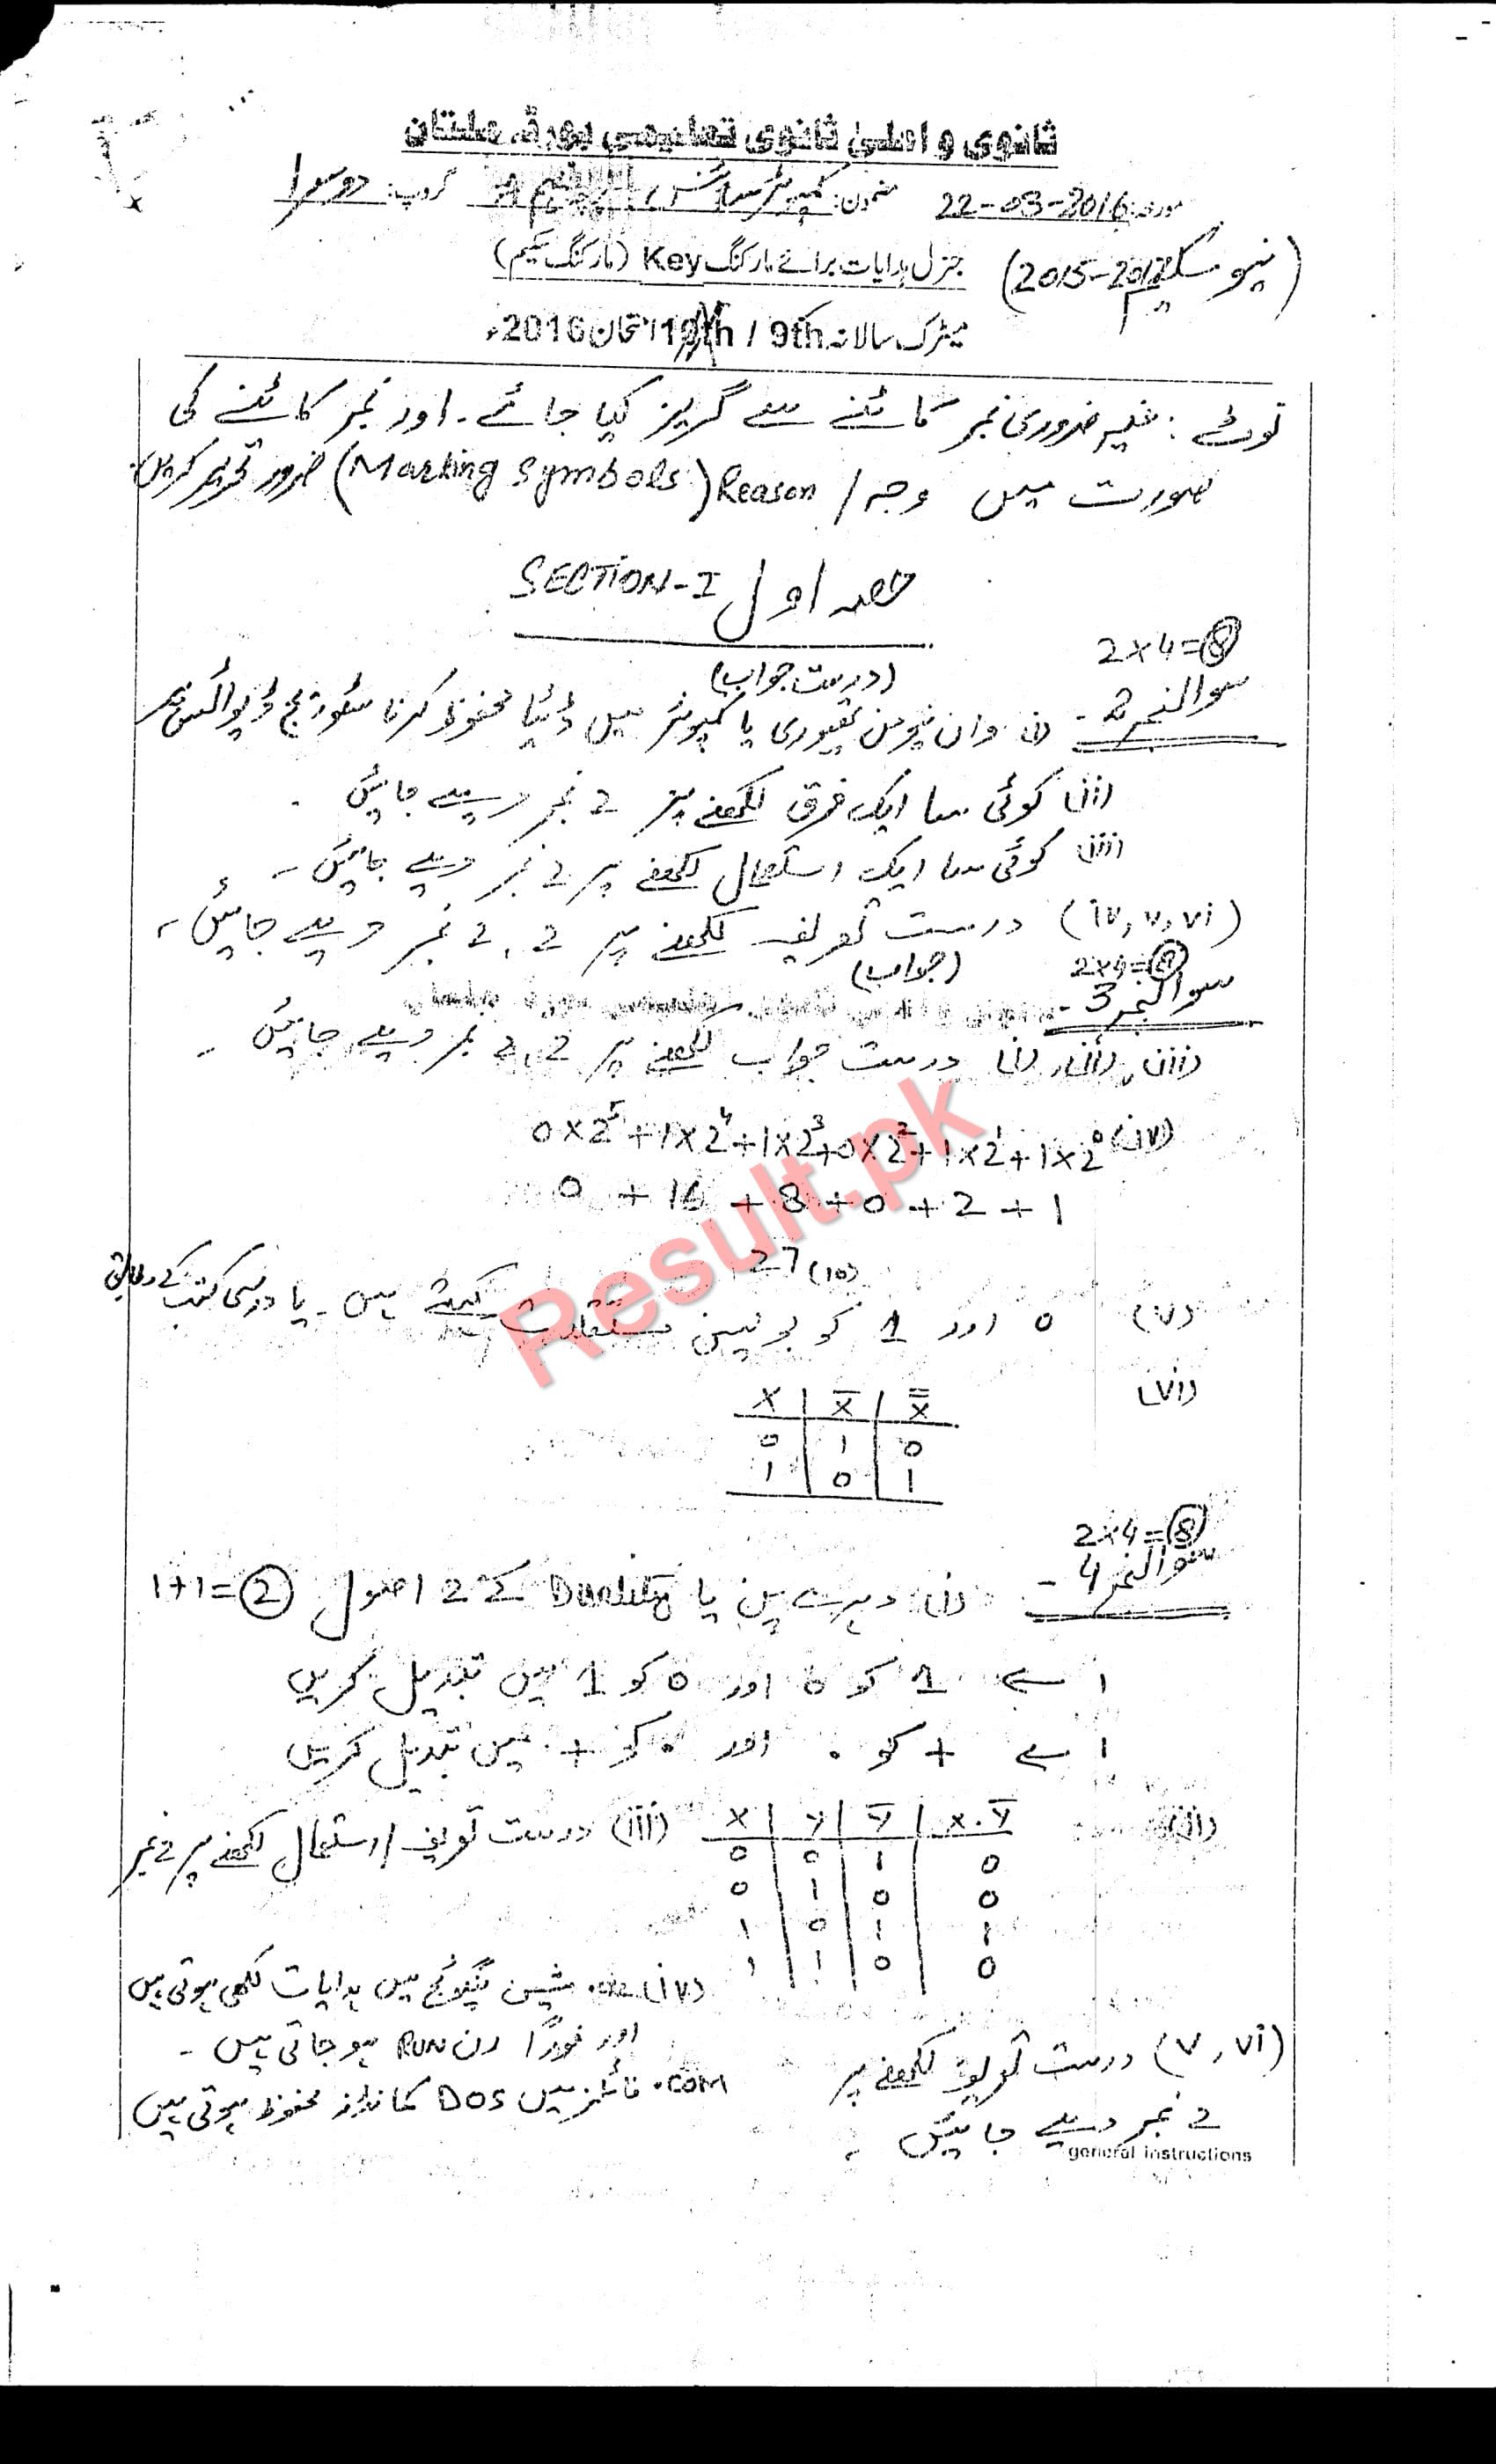 ثانوی و اعلیٰ ثانوی تعلیمی بورڈ، ملتان
مورخہ: 22-03-2016 مضمون: کمپیوٹر سائنس گروپ: دوسرا
(نیو سکیم 2015-2017) جنرل ہدایات برائے مارکنگ Key (مارکنگ سکیم)
میٹرک سالانہ 9th / 10th امتحان 2016ء
نوٹ: غیر ضروری نمبر کاٹنے سے گریز کیا جائے۔ اور نمبر کاٹنے کی
صورت میں وجہ / Reason (Marking Symbols) ضرور تحریر کریں۔
حصہ اول SECTION-I
2x4=8
(درست جواب)
سوال نمبر 2- (i) وان نیومن تھیوری یا کمپیوٹر میں ڈیٹا محفوظ کرنا سٹوریج ڈیوائس
(ii) کوئی سا ایک فرق لکھنے پر 2 نمبر دیئے جائیں۔
(iii) کوئی سا ایک استعمال لکھنے پر 2 نمبر دیئے جائیں۔
(iv, v, vi) درست تعریف لکھنے پر 2, 2 نمبر دیئے جائیں۔
2x4=8 (جواب)
سوال نمبر 3-
(i), (ii), (iii) درست جواب لکھنے پر 2, 2 نمبر دیئے جائیں۔
(iv) 0x2⁵+1x2⁴+1x2³+0x2²+1x2¹+1x2⁰
0 + 16 + 8 + 0 + 2 + 1
27(10)
(v) 0 اور 1 کو بولین مستقلات کہتے ہیں۔ یا درسی کتب کے مطابق
(vi)
X | X̄ | X̿
0 | 1 | 0
1 | 0 | 1
2x4=8
سوال نمبر 4- (i) دہرے پن یا Duality کے 2 اصول 1+1=2
1 کو 0 اور 0 کو 1 میں تبدیل کریں
+ کو . اور . کو + میں تبدیل کریں
(ii)
X | Y | Ȳ | X.Ȳ
0 | 0 | 1 | 0
0 | 1 | 0 | 0
1 | 0 | 1 | 1
1 | 1 | 0 | 0
(iii) درست تعریف / استعمال لکھنے پر 2 نمبر
(iv) مشین لینگوئج میں ہدایات لکھی ہوتی ہیں
اور فوراً رن RUN ہو جاتی ہیں۔
.COM فائلز میں DOS کمانڈز محفوظ ہوتی ہیں
(v, vi) درست تعریف لکھنے پر
2 نمبر دیئے جائیں۔
general instructions
Result.pk